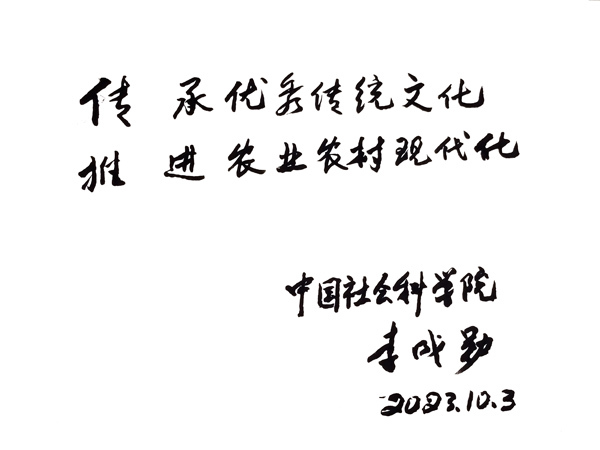 传承优秀传统文化
推进农业农村现代化
中国社会科学院
李成勋
2023.10.3